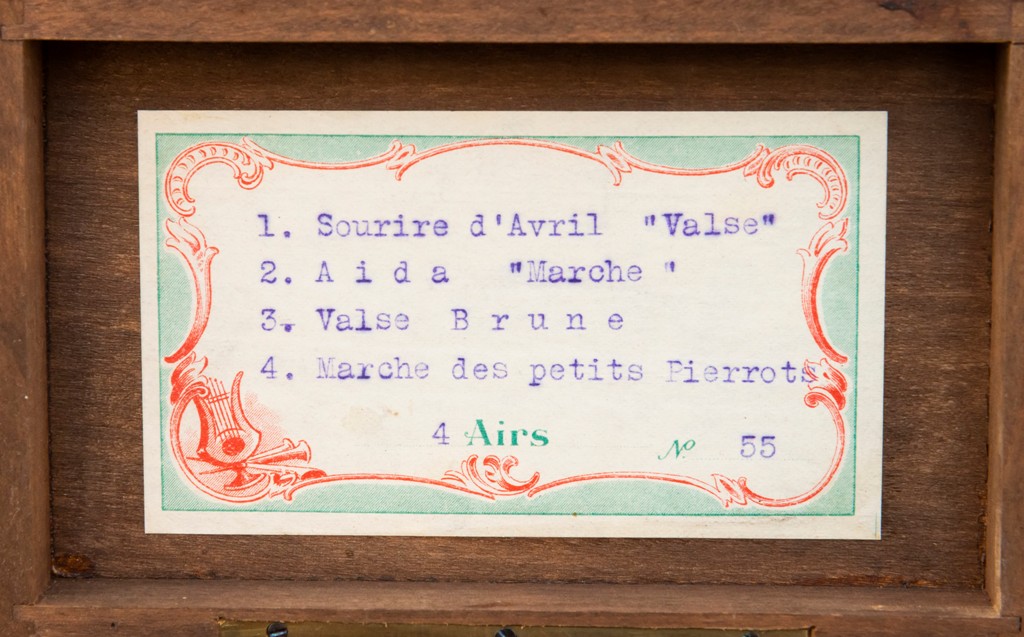 1. Sourire d'Avril "Valse"
2. A i d a "Marche "
3. Valse B r u n e
4. Marche des petits Pierrots
4 Airs No 55